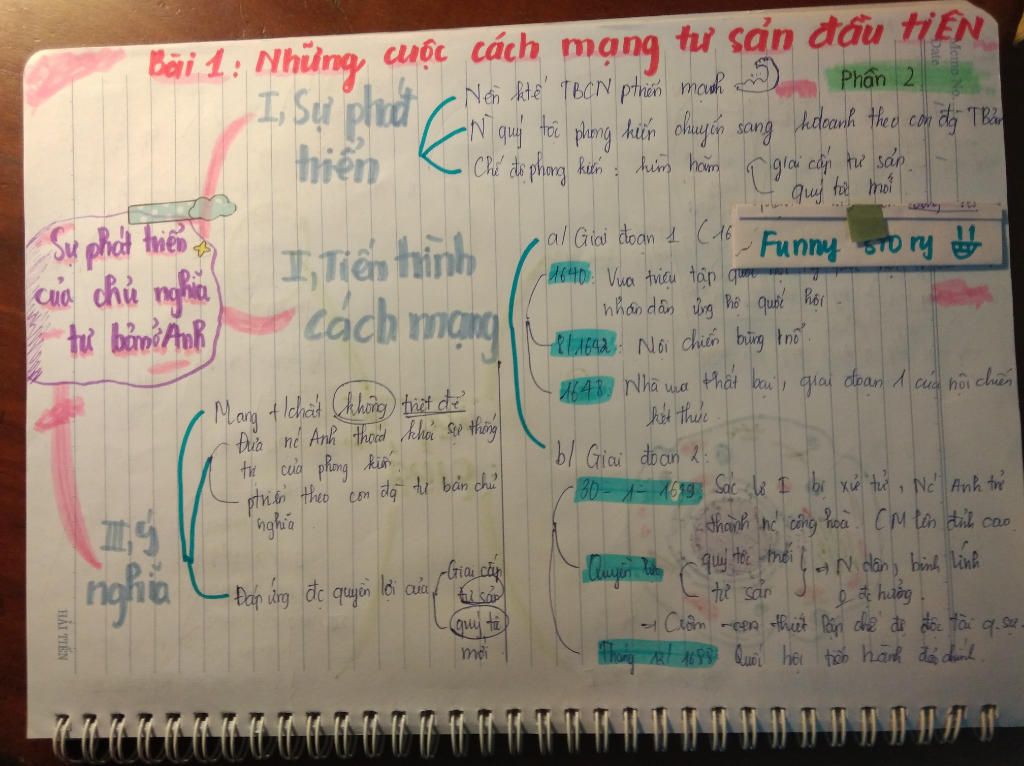 Bài 1: Những cuộc cách mạng tư sản đầu tiên
Phần 2
Sự phát triển
của chủ nghĩa
tư bản ở Anh
I, Sự phát
triển
Nền ktế TBCN ptriển mạnh
N~ quý tộc phong kiến chuyển sang kdoanh theo con đg TBản
Chế độ phong kiến: kìm hãm
giai cấp tư sản.
quý tộc mới.
I, Tiến trình
cách mạng
a/ Giai đoạn 1 (16
Funny story
1640: Vua triệu tập quốc hội
nhân dân ủng hộ quốc hội.
8/1642: Nội chiến bùng nổ.
1648: Nhà vua thất bại, giai đoạn 1 của nội chiến
kết thúc.
b/ Giai đoạn 2:
30-1-1649 Sác lơ I bị xử tử, Nc Anh trở
thành nc cộng hoà. CM lên đỉnh cao.
Quyền
quý tộc mới
tư sản
→ N. dân, binh lính
đc hưởng.
→ Crôm-oen thiết lập chế độ độc tài q.sự.
Tháng 12/1688 Quốc hội tiến hành đảo chính.
III, ý
nghĩa
Mang t/chất không triệt để
Đưa nc Anh thoát khỏi sự thống
trị của phong kiến.
ptriển theo con đg tư bản chủ
nghĩa.
Đáp ứng đc quyền lợi của
Giai cấp
tư sản
quý tộ
mới
HẢI TIẾN
Memo No.
Date